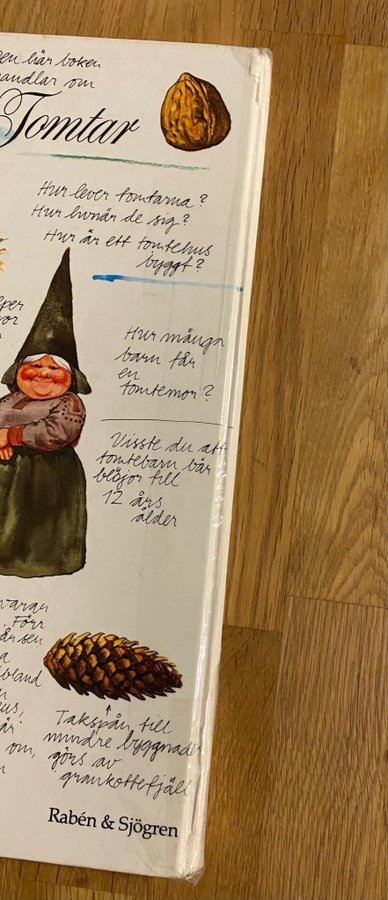 här boken
handlar om
Tomtar
Hur lever tomtarna?
Hur livnär de sig?
Hur är ett tomtehus
byggt?
Hur många
barn får
en
tomtemor?
Visste du att
tomtebarn bär
blöjor till
12 års
ålder
Förr
om,
Takspån till
mindre byggnader
görs av
grankottefjäll
Rabén & Sjögren